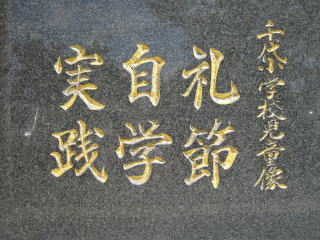 千代小学校児童像
礼節
自学
実践